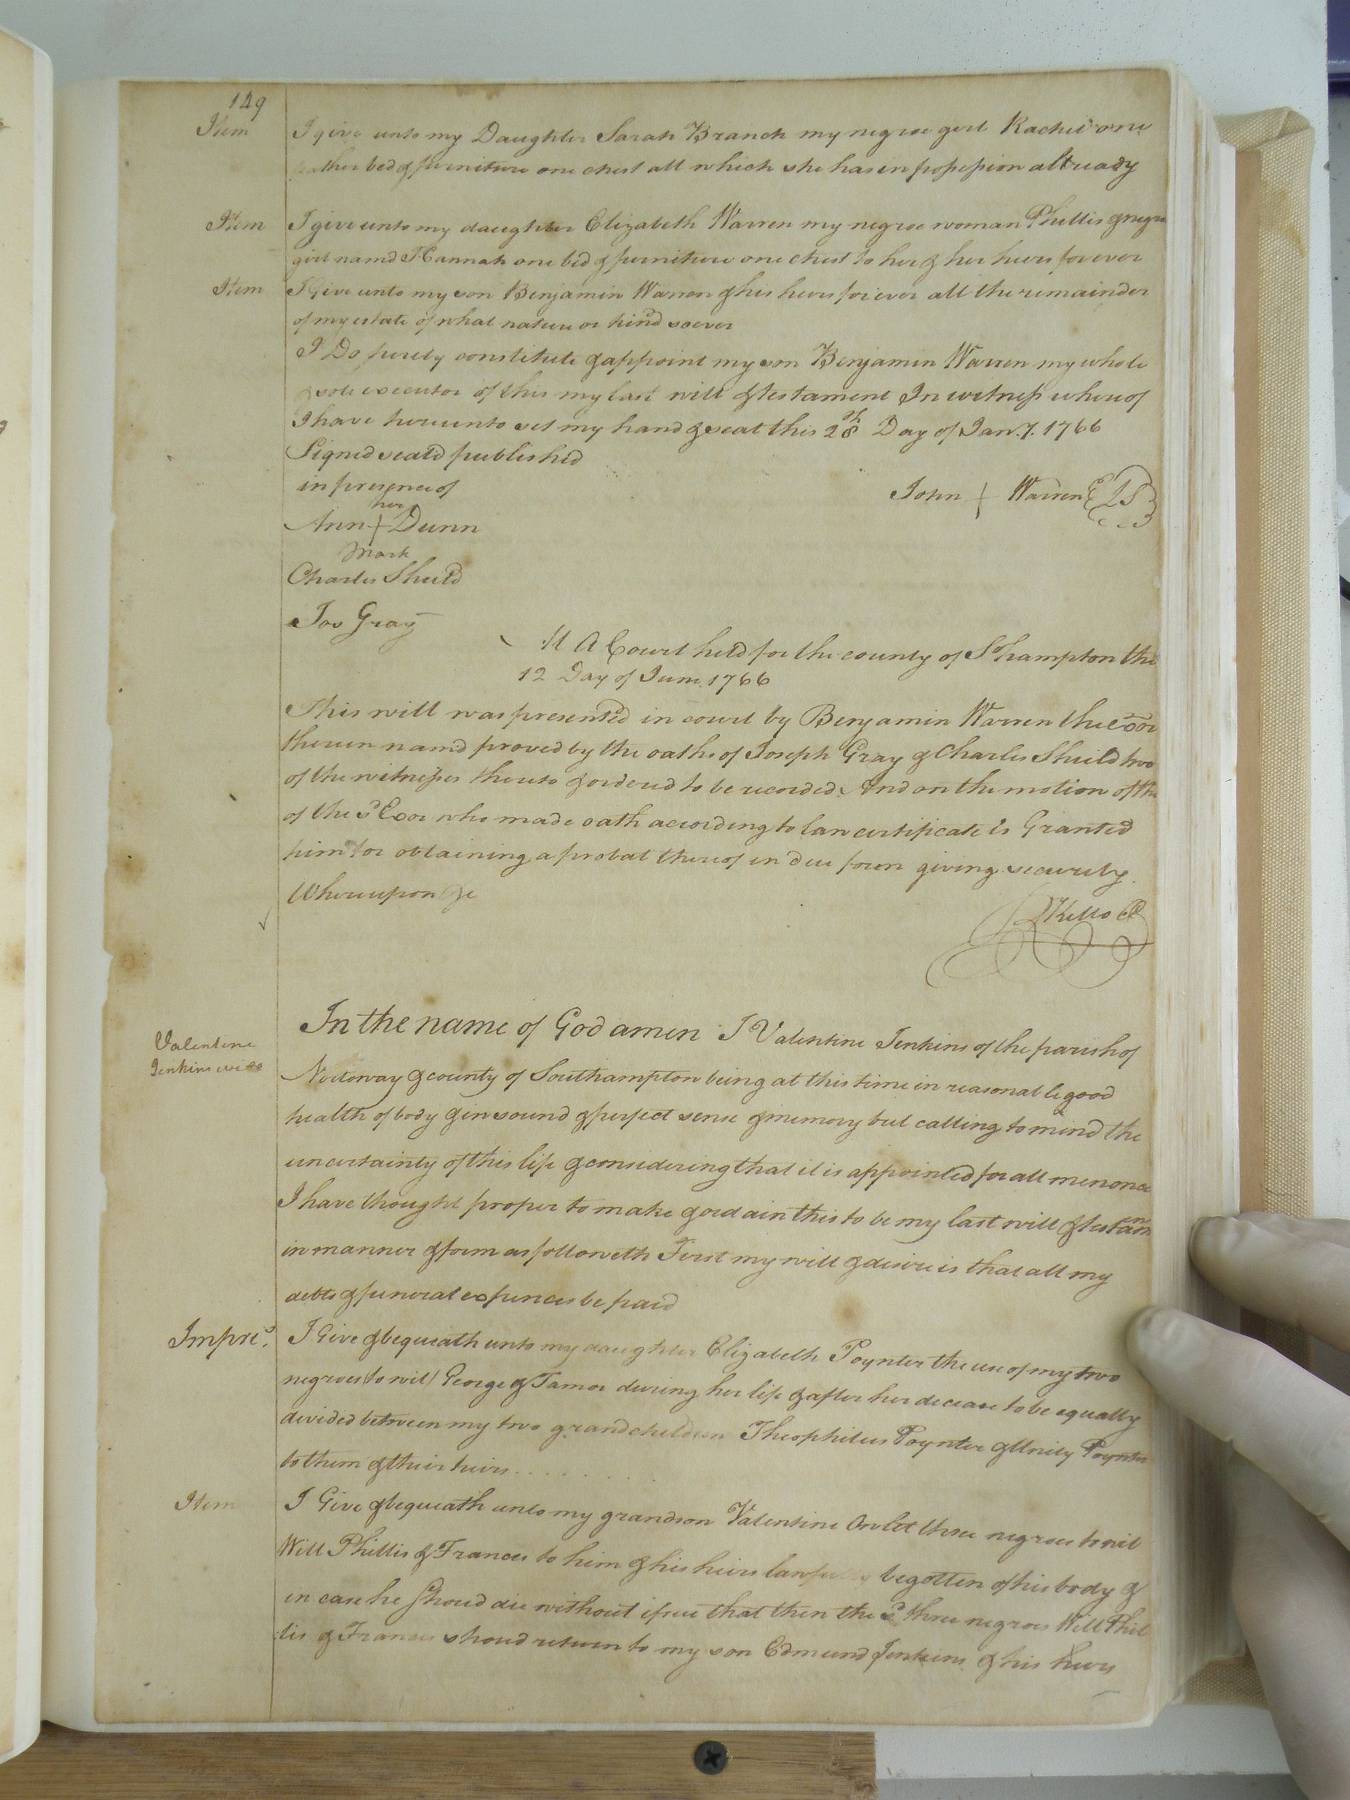 149
Item I give unto my Daughter Sarah Branch my negroe girl Rachel one
feather bed & furniture one chest all which she has in possession allready
Item I give unto my daughter Elizabeth Warren my negroe woman Phillis & negro
girl namd Hannah one bed & furniture one chest to her & her heirs forever
Item I Give unto my son Benjamin Warren & his heirs forever all the remainder
of my estate of what nature or kind soever
I Do constitute & appoint my son Benjamin Warren my whole
& sole executor of this my last will & testament In witness whereof
I have hereunto set my hand & seal this 28th Day of Jan.y. 1766
Signed seald published
in presence of
John Warren LS
her
Ann Dunn
Mark
Charles Sheild
Jos Gray
At A Court held for the county of So.hampton the
12 Day of June 1766
This will was presented in court by Benjamin Warren the Exor
therein namd proved by the oaths of Joseph Gray & Charles Sheild two
of the witnesses thereto & ordered to be recorded. And on the motion of the
of the sd Exor who made oath according to law certificate is Granted
him for obtaining a probat thereof in due form giving security.
Whereupon &c
RKello
Valentine
Jenkins will
In the name of God amen I Valentine Jenkins of the parish of
Nottoway & county of Southampton being at this time in reasonable good
health of body & in sound & perfect sense & memory but calling to mind the
uncertainty of this life & considering that it is appointed for all men once
I have thought proper to make & ordain this to be my last will & testam
in manner & form as followeth First my will & desire is that all my
debts & funeral expences be paid
Impre. I Give & bequeath unto my daughter Elizabeth Poynter the use of my two
negroes (to wit) George & Tamor during her life & after her decease to be equally
devided between my two grandchildren Theophilus Poynter & Unity Poynter
to them & their heirs . . . . . . . .
Item I Give & bequeath unto my grandson Valentine three negroes to wit
Will Phillis & Frances to him & his heirs lawfully begotten of his body &
in case he shoud die without issue that then the sd three negroes Will Phil
lis & Frances shoud return to my son Edmund Jenkins & his heirs